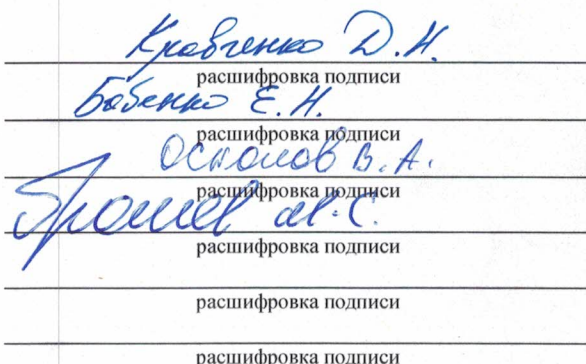 Кравченко Д.Н.
расшифровка подписи
Бабенко Е.Н.
расшифровка подписи
Осколов В.А.
расшифровка подписи
М.С.
расшифровка подписи
расшифровка подписи
расшифровка подписи